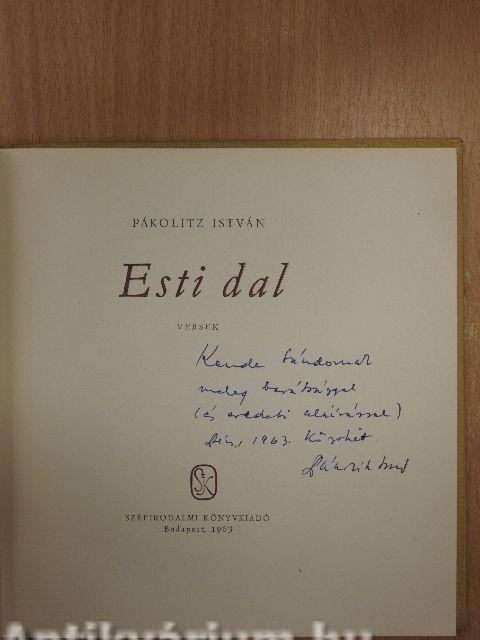 PÁKOLITZ ISTVÁN
Esti dal
VERSEK
Kende Sándornak
meleg barátsággal
(és eredeti aláírással)
Pécs, 1963. Kövhét
SzK
SZÉPIRODALMI KÖNYVKIADÓ
Budapest, 1963
Antikvárium.hu